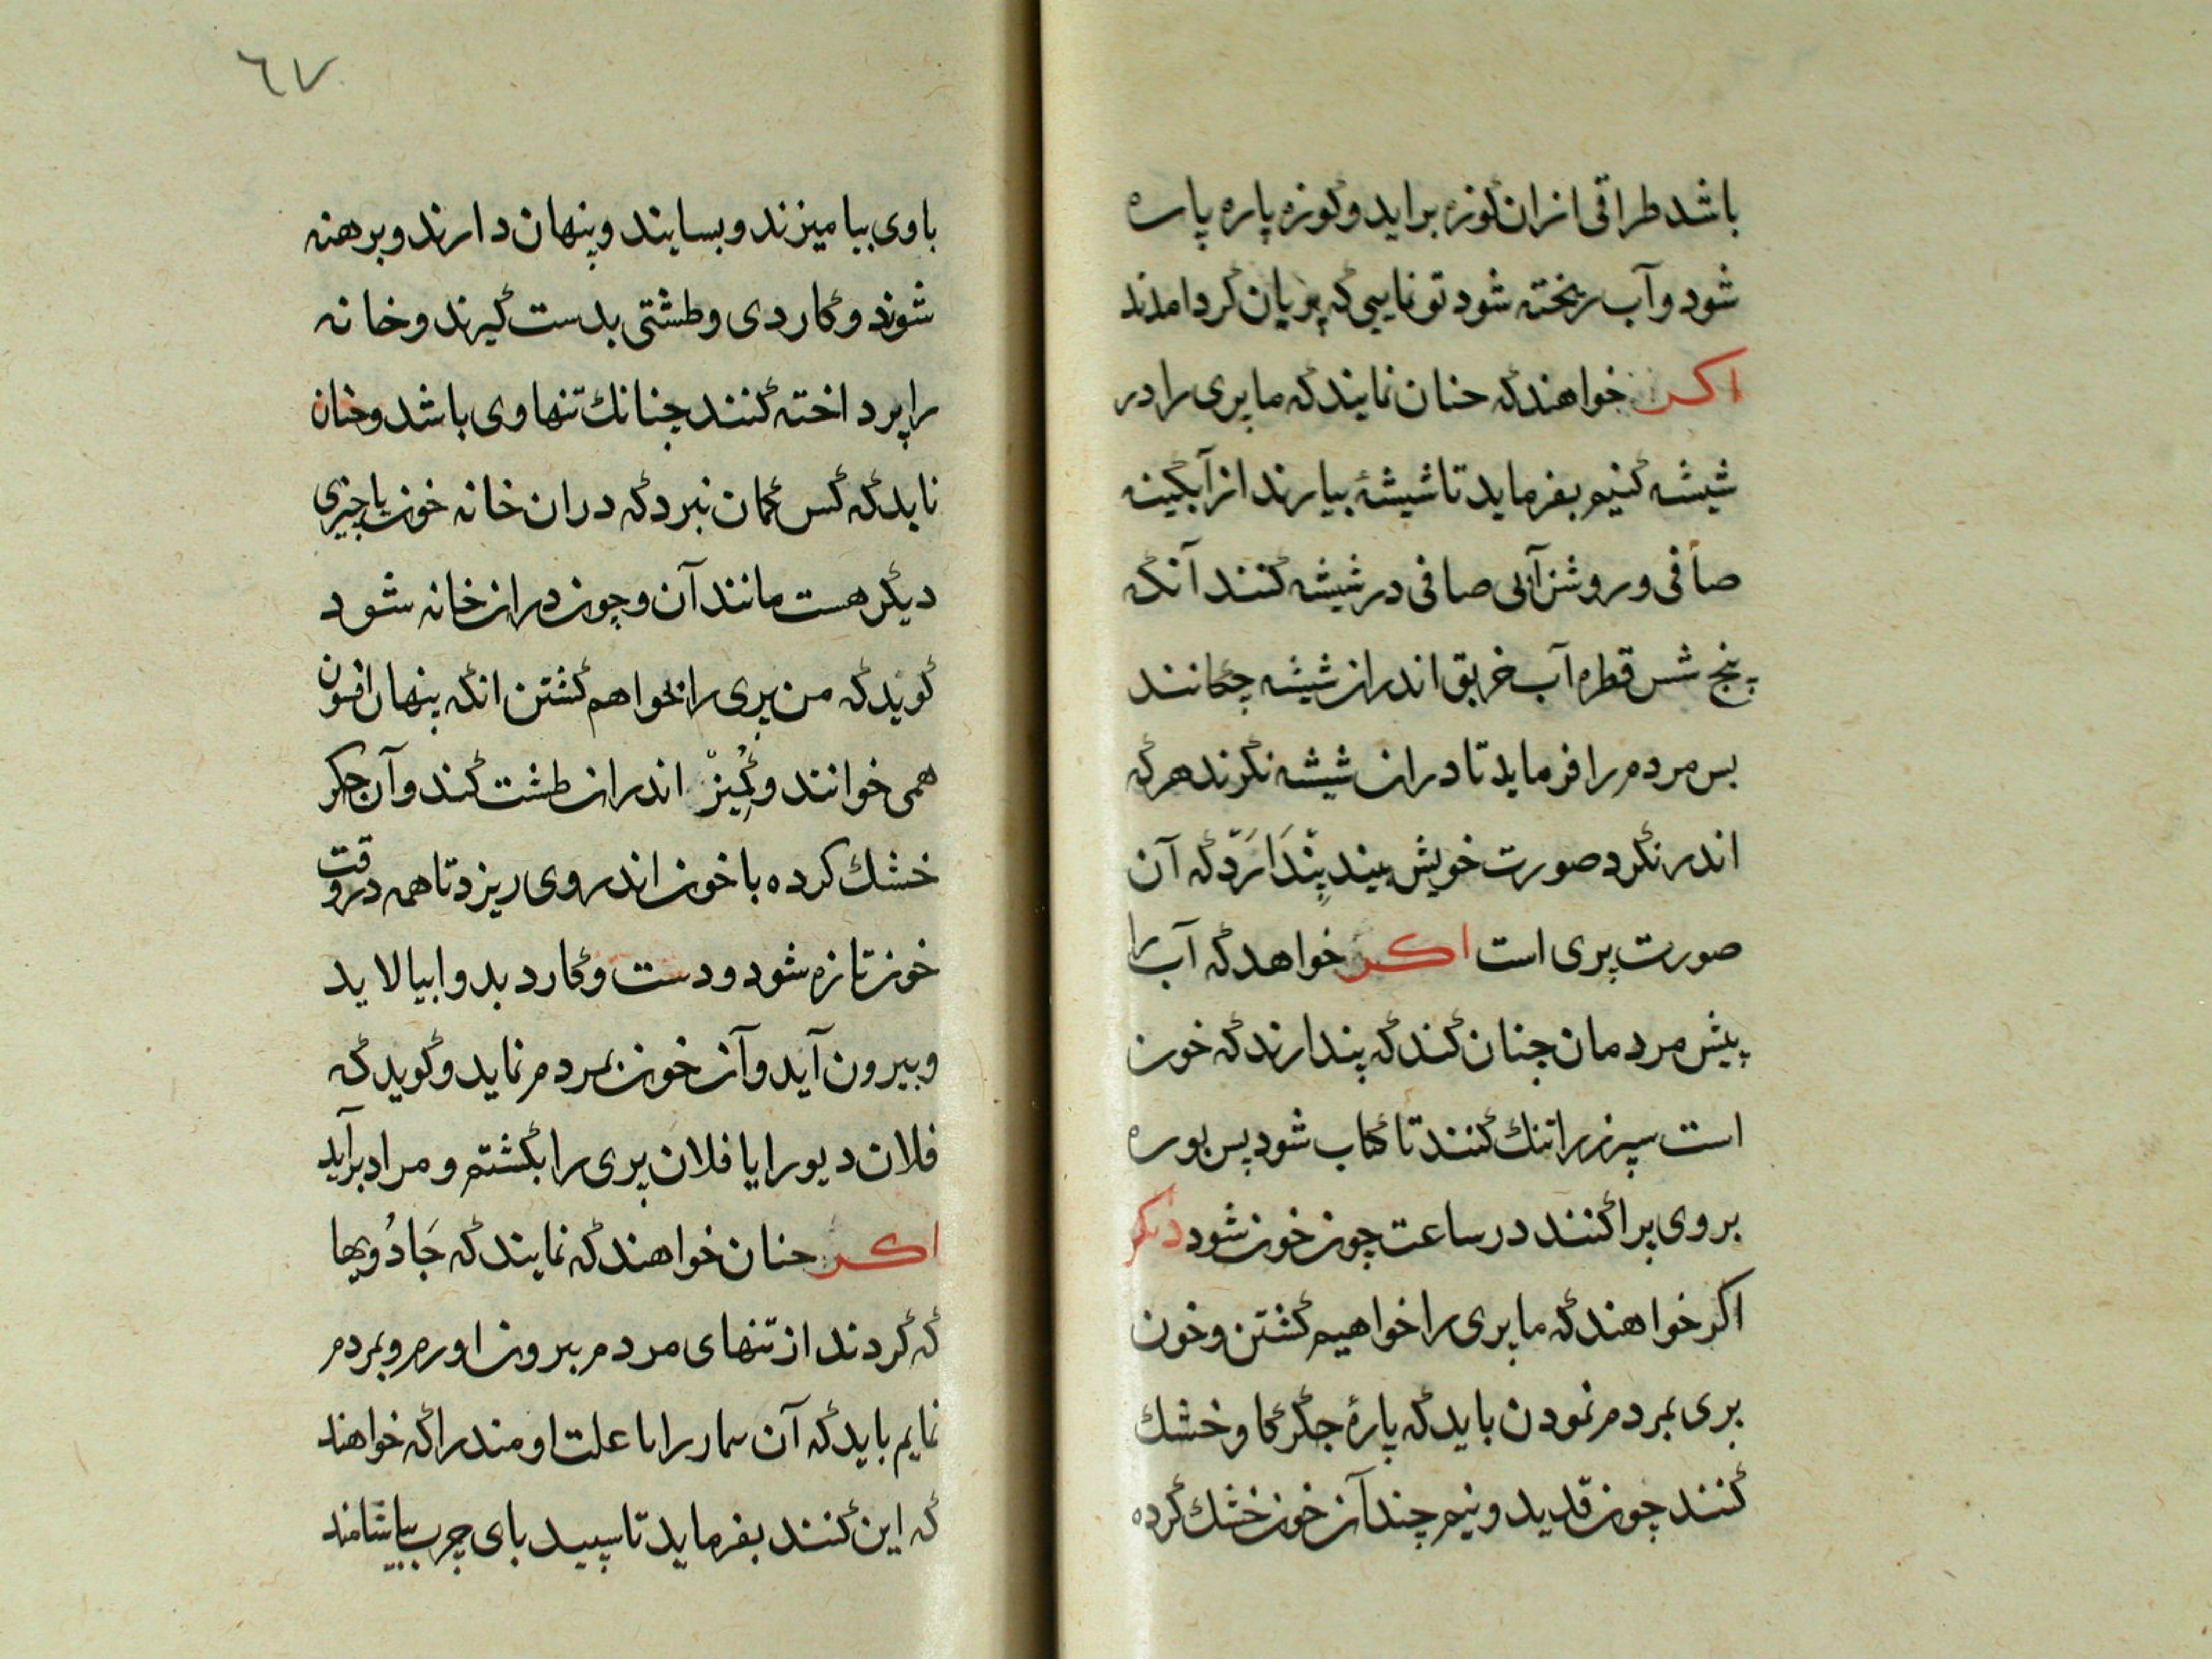 باشد طراقی ازان کوزه براید و کوزه پاره پاره
شود و آب ریخته شود تو نمایی که پریان گرد امدند
اکر خواهند که حنان نمایند که ما پری را در
شیشه کنیم بفرماید تا شیشهٔ بیارند از آبکینه
صافی و روشن آبی صافی در شیشه کنند آنکه
پنج شس قطره آب خربق اندران شیشه چکانند
بس مردم را فرماید تا دران شیشه نکرند هرکه
اندر نکرد صورت خویش بیند پندارد که آن
صورت پری است اکر خواهد که آب را
پیش مردمان چنان کند که پندارند که خون
است سپرز را تنك کنند تا کباب شود پس بوره
بروی پراکنند در ساعت چون خون شود دیکر
اکر خواهند که ما پری را خواهیم کشتن و خون
پری بمردم نمودن باید که پارهٔ جکر کاو خشك
کنند چون قدید و نیم چند آن خون خشك کرده
٦٧
با وی بیامیزند و بسایند و پنهان دارند و برهنه
شوند و کاردی و طشتی بدست کیرند و خانه
را پرداخته کنند چنانك تنها وی باشد و حنان
نماید که کس کمان نبرد که دران خانه خون یا چیزی
دیکر هست مانند آن و چون دران خانه شود
کوید که من پری را بخواهم کشتن انکه پنهان افسون
همی خوانند و کمیز اندران طشت کند و آن جکر
خشك کرده با خون اندر وی ریزد تا همه در وقت
خون تازه شود و دست و کارد بدو ابیالاید
و بیرون آید و آن خون بمردم نماید و کوید که
فلان دیو را یا فلان پری را بکشتم و مراد براید
اکر حنان خواهند که نمایند که جادویها
که کردند از تنهای مردم بیرون اورم و بمردم
نمایم باید که آن سمار را با علت اومند را که خواهند
که این کنند بفرماید تا سپید بای چرب بیاشامند